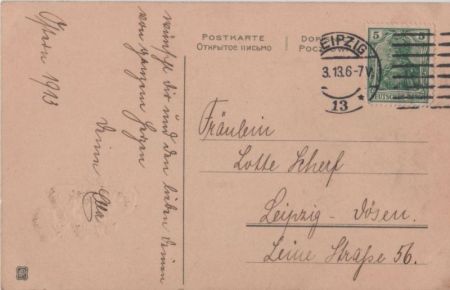 POSTKARTE
Открытое письмо
LEIPZIG
3.13.6-7V.
13
5
5
Ostern 1913
wünscht dir und den lieben Deinen
von ganzem Herzen
Deine
Fräulein
Lotte Scherf
Leipzig - Dösen.
Leine Straße 56.